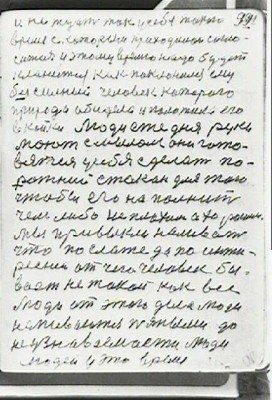 и не тует так у себя такое 39
время с. которым приходится
и этому время надо будет
как поклонился ему
бессильный человек которого
природа обидела и положила его
в койки Люди сте дня руки
моют с мылом они гото-
вятся у себя сделат по-
рожний стакан для того
чтобы его на полнит
чем либо не плохим а хорошим
Мы привыкли наливат
что по слаще да по инти-
ресней от чего человек бы-
вает не такой как все
Люди от этого дела люди
напиваются пяными до
неузнаваемасти люди
людей у это время